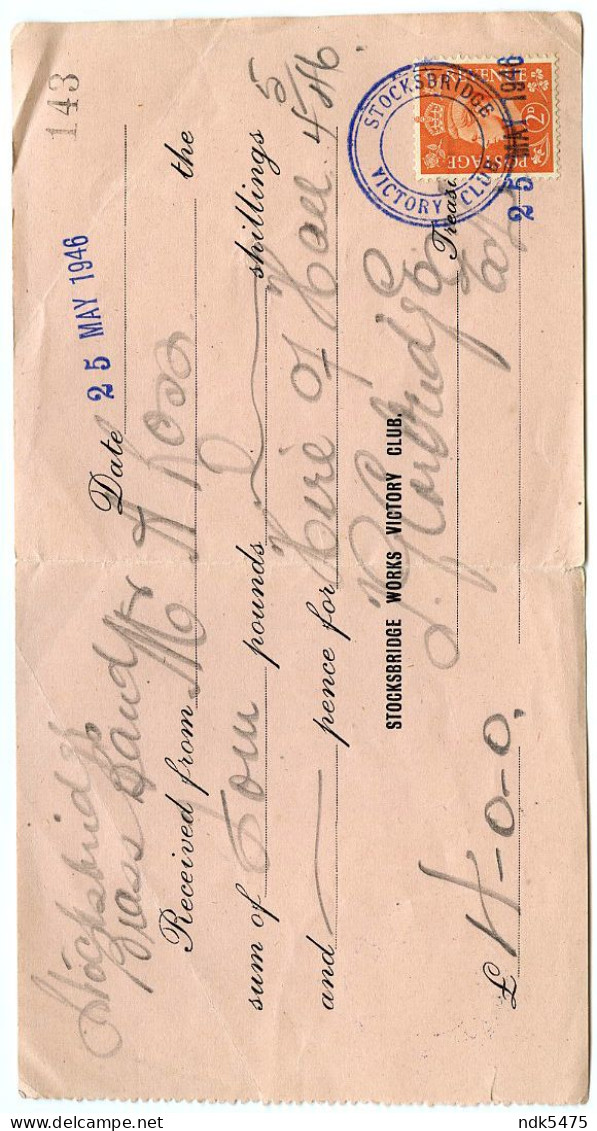 143
Stocksbridge
Brass Band
Date 25 MAY 1946
Received from Mr A Ross the
sum of Four pounds shillings
and pence for Hire of Hall 4/5/46
STOCKSBRIDGE WORKS VICTORY CLUB.
£ 4-0-0.
STOCKSBRIDGE
VICTORY CLUB
25 MAY 1946
POSTAGE
2D
ndk5475